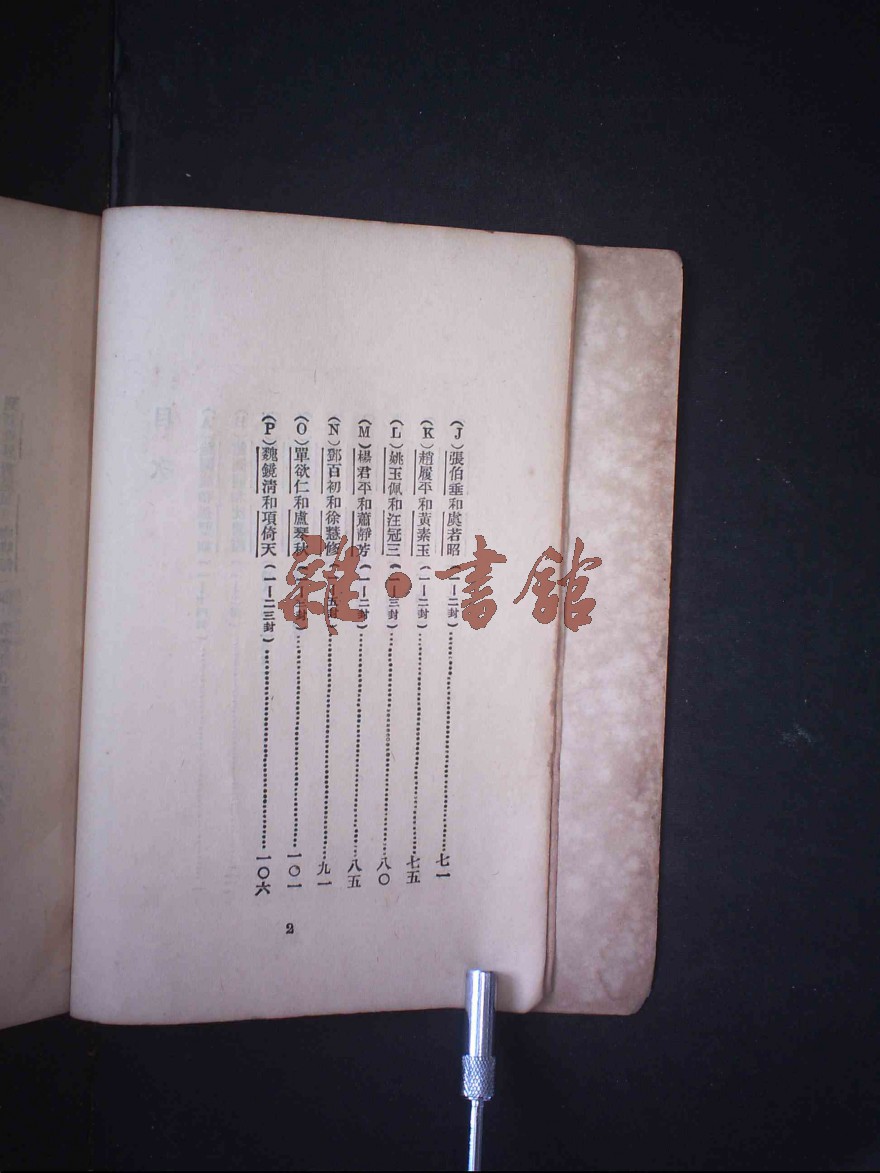 (J)張伯垂和虞若昭(一—二封)……七一
(K)趙履平和黃素玉(一—二封)……七五
(L)姚玉佩和汪冠三(一—三封)……八〇
(M)楊君平和蕭靜芳(一—二封)……八五
(N)鄧百初和徐慧修(一—五封)……九一
(O)單欲仁和盧琴秋(一—十封)……一〇一
(P)魏鏡清和項倚天(一—二三封)……一〇六
2
雜·書館